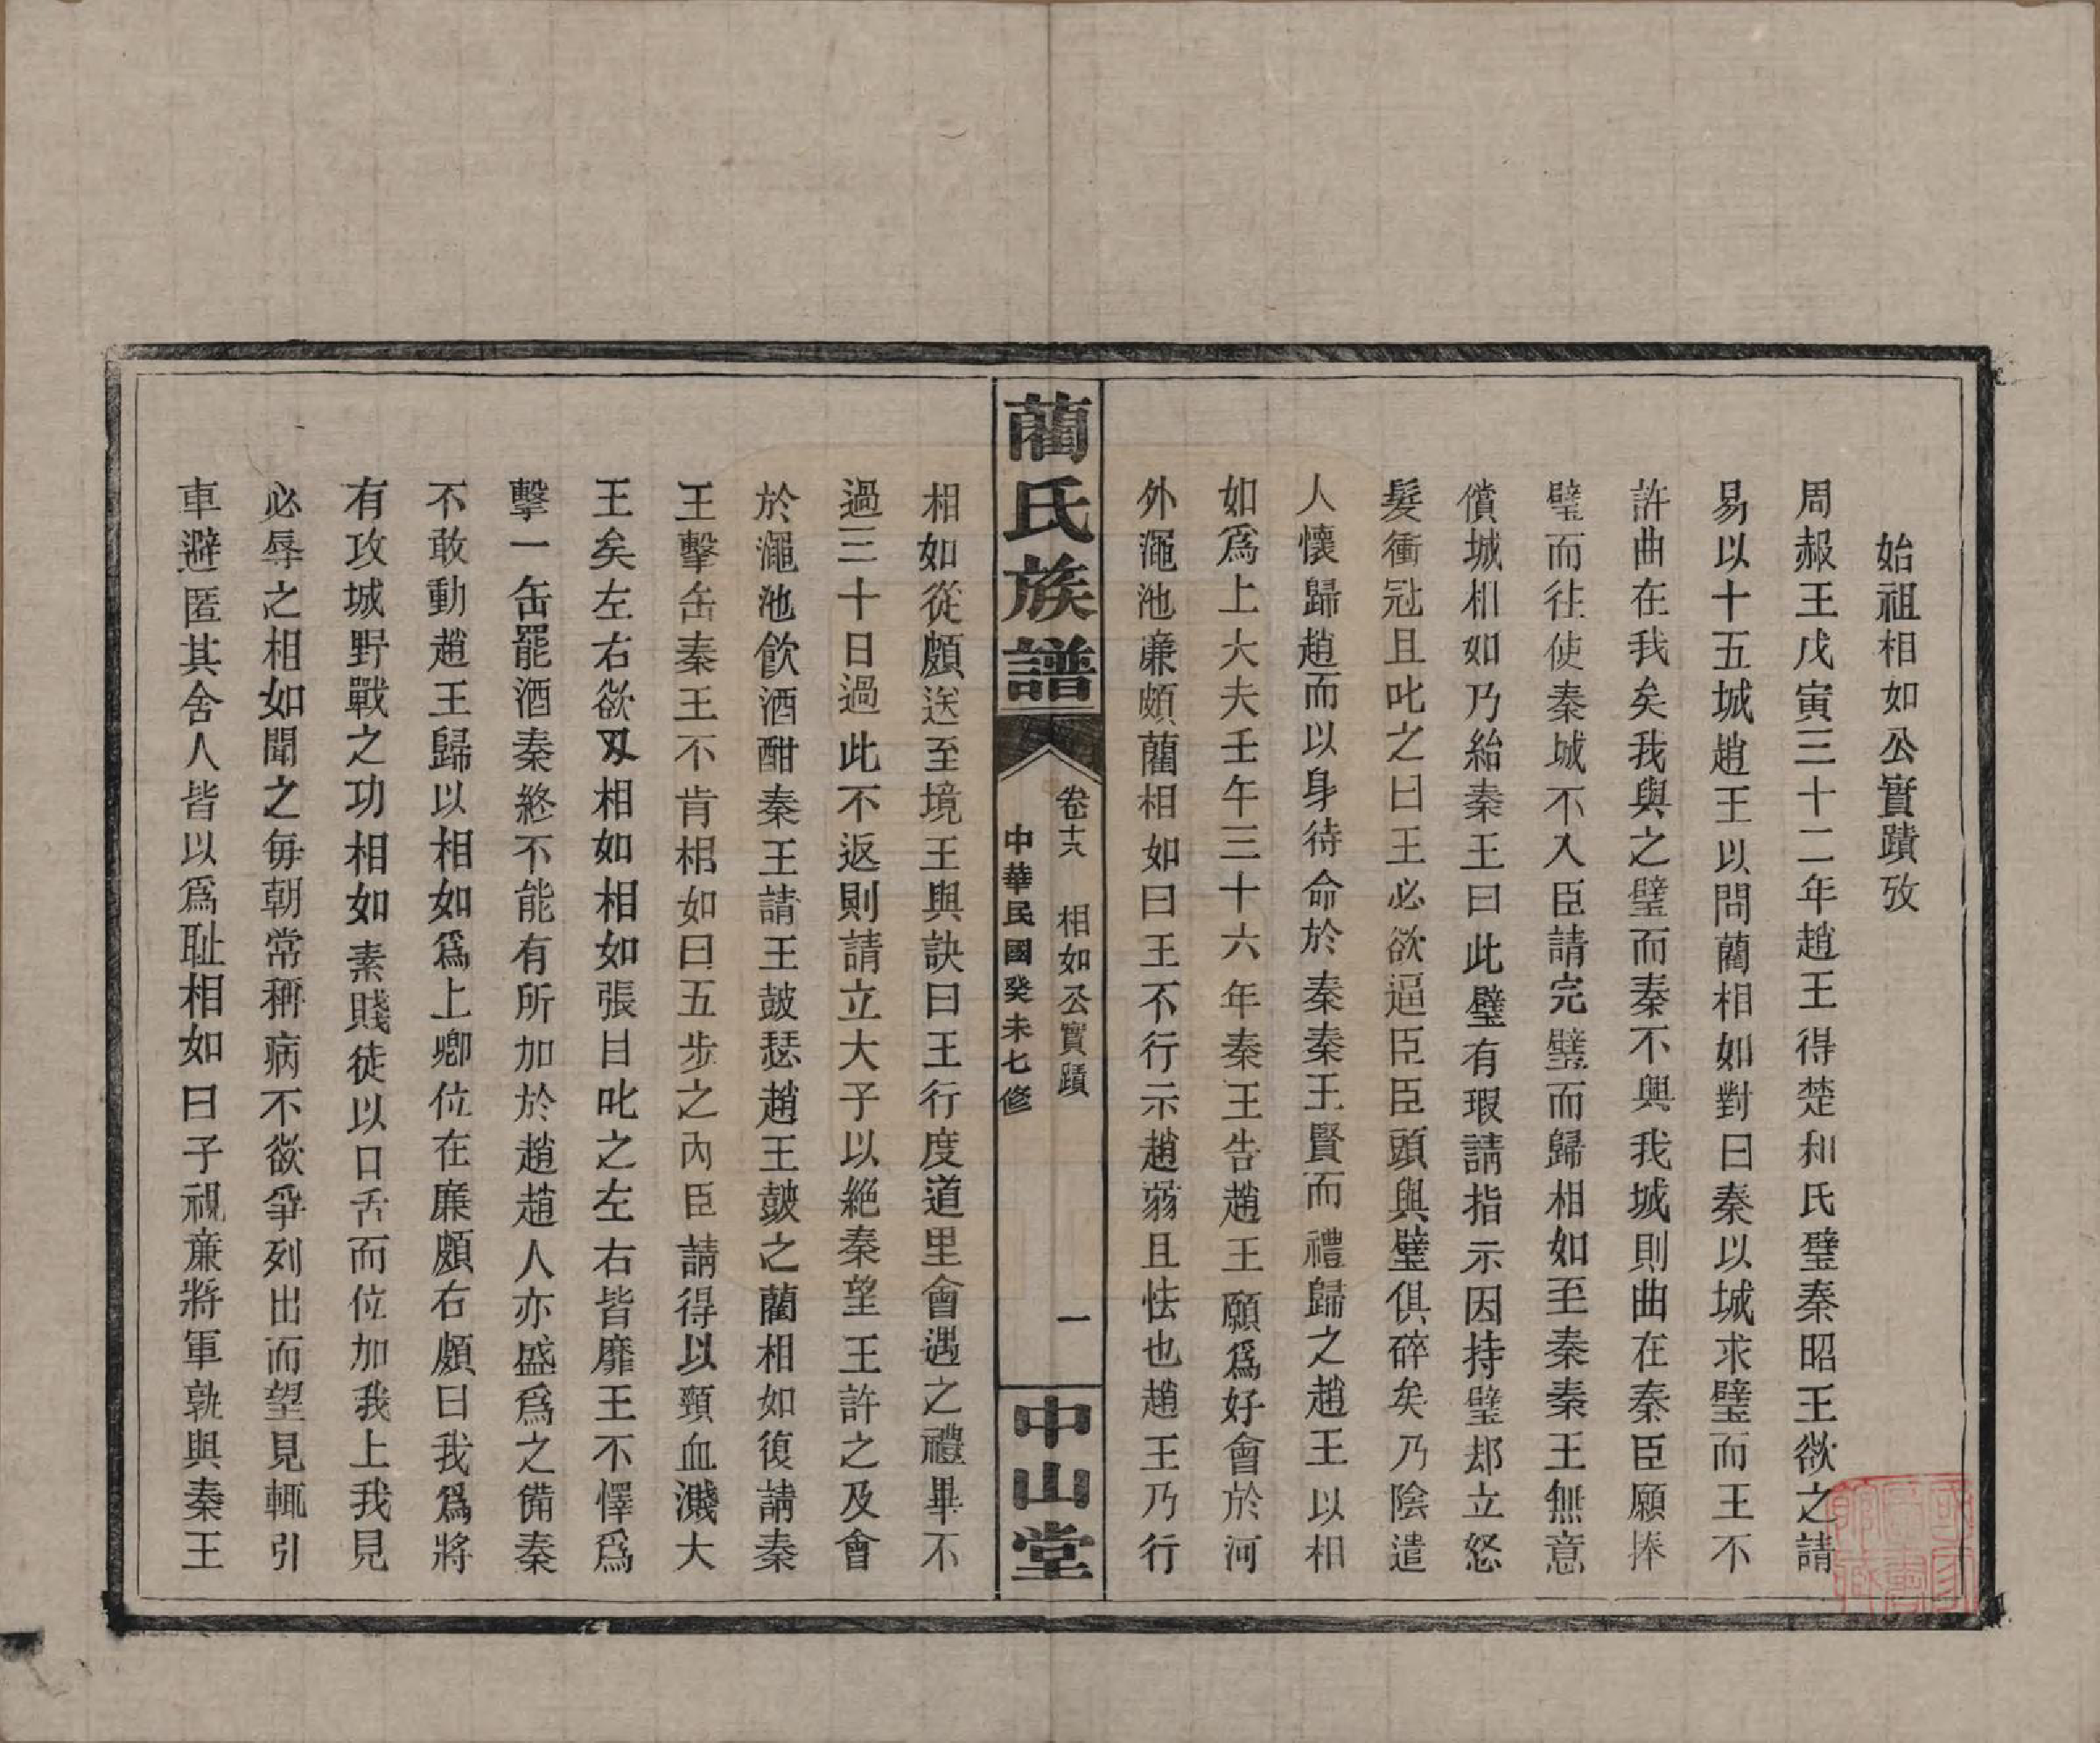 始祖相如公實蹟攷
周赧王戊寅三十二年趙王得楚和氏璧秦昭王欲之請
易以十五城趙王以問藺相如對曰秦以城求璧而王不
許曲在我矣我與之璧而秦不與我城則曲在秦臣願捧
璧而往使秦城不入臣請完璧而歸相如至秦秦王無意
償城相如乃紿秦王曰此璧有瑕請指示因持璧却立怒
髮衝冠且叱之曰王必欲逼臣臣頭與璧俱碎矣乃陰遣
人懷歸趙而以身待命於秦秦王賢而禮歸之趙王以相
如爲上大夫壬午三十六年秦王告趙王願爲好會於河
外澠池亷頗藺相如曰王不行示趙弱且怯也趙王乃行
藺氏族譜
卷十六　相如公實蹟　一
中華民國癸未七修
中山堂
相如從頗送至境王與訣曰王行度道里會遇之禮畢不
過三十日過此不返則請立大子以絕秦望王許之及會
於澠池飮酒酣秦王請王鼓瑟趙王鼓之藺相如復請秦
王擊缶秦王不肯相如曰五步之內臣請得以頸血濺大
王矣左右欲刄相如相如張目叱之左右皆靡王不懌爲
擊一缶罷酒秦終不能有所加於趙趙人亦盛爲之備秦
不敢動趙王歸以相如爲上卿位在廉頗右頗曰我爲將
有攻城野戰之功相如素賤徒以口舌而位加我上我見
必辱之相如聞之每朝常稱病不欲爭列出而望見輒引
車避匿其舍人皆以爲耻相如曰子視亷將軍孰與秦王